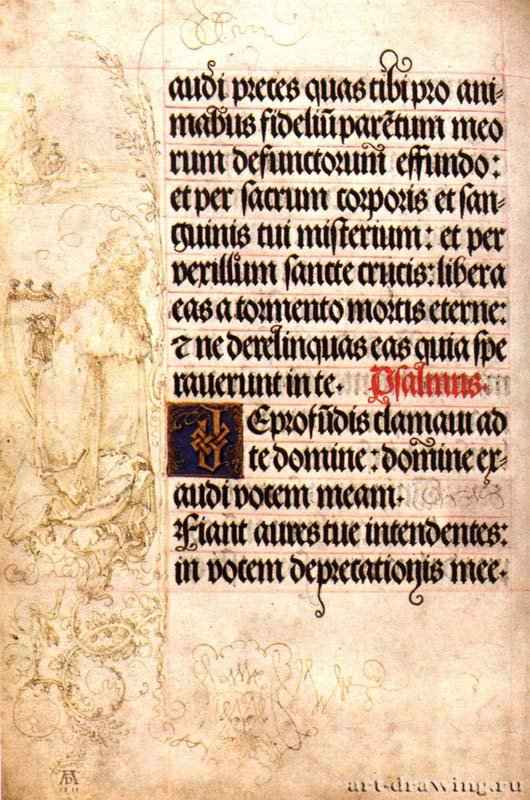 audi preces quas tibi pro ani-
mabus fideliū parētum meo
rum defunctorum effundo:
et per sacrum corporis et san-
guinis tui misterium: et per
vexillum sancte crucis: libera
eas a tormento mortis eterne:
⁊ ne derelinquas eas quia spe
rauerunt in te. Psalmus.
De profūdis clamaui ad
te domine: domine ex-
audi vocem meam.
Fiant aures tue intendentes:
in vocem deprecationis mee.
AD
art-drawing.ru